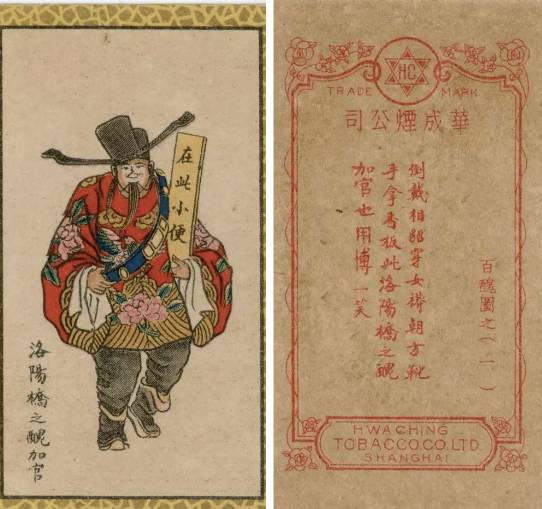 在此小便
洛陽橋之醜加官
HC
TRADE MARK
華成煙公司
百醜圖之(一)
倒戴相貂穿女朝方靴
手拿板此洛陽橋之醜
加官也用博一笑
HWACHING
TOBACCO.CO.LTD.
SHANGHAI